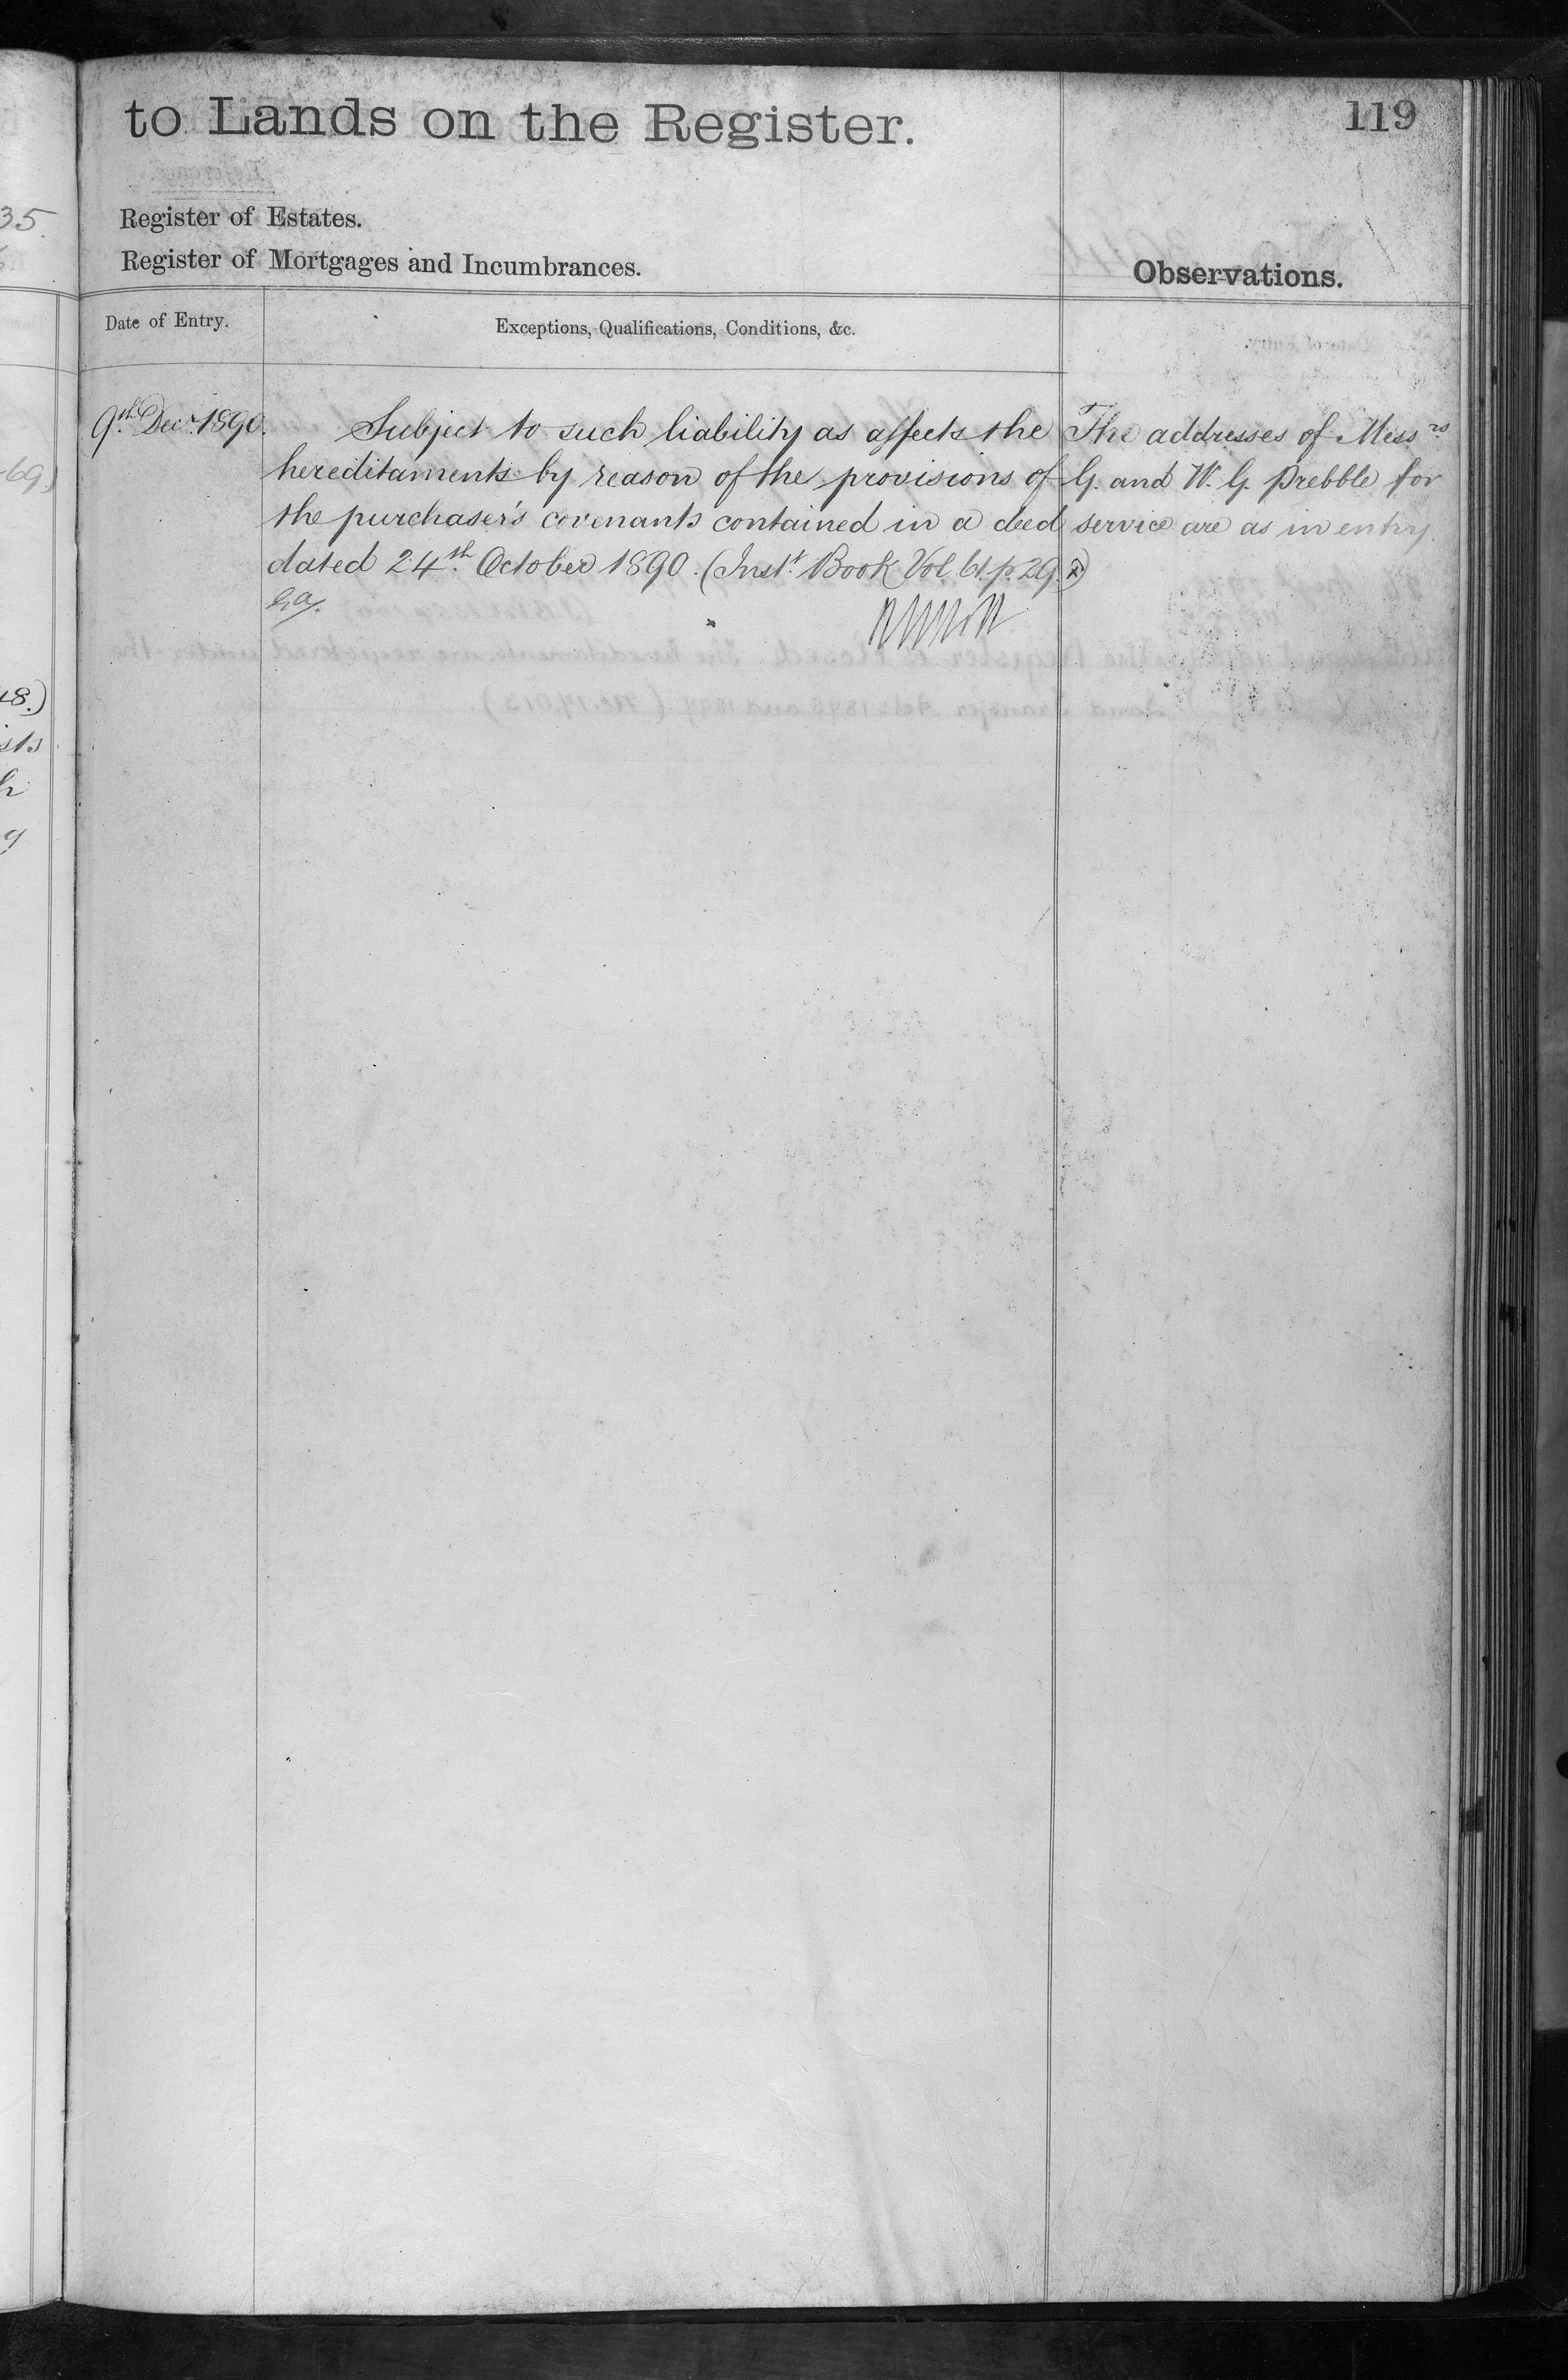 to Lands on the Register.
119
Register of Estates.
Register of Mortgages and Incumbrances.
Observations.
Date of Entry.
Exceptions, Qualifications, Conditions, &c.
9th Decr 1890.
Subject to such liability as affects the
hereditaments by reason of the provisions of
the purchaser's covenants contained in a deed
dated 24th October 1890. (Inst. Book Vol. 61. p. 29.)
The addresses of Messrs
G. and W. G. Prebble for
service are as in entry.
35.
69)
48.)